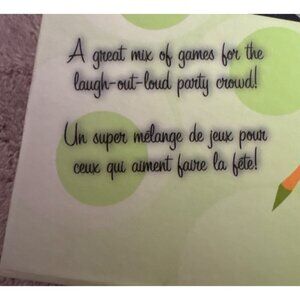 A great mix of games for the
laugh-out-loud party crowd!
Un super mélange de jeux pour
ceux qui aiment faire la fête!